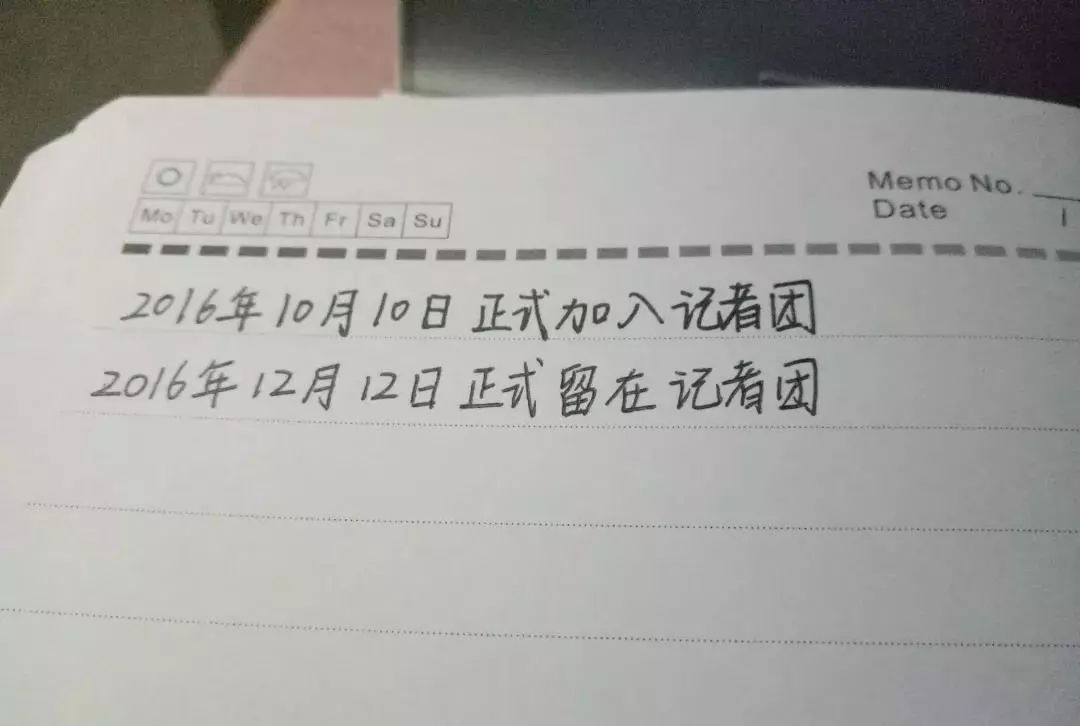 Memo No.
Mo Tu We Th Fr Sa Su
Date /
2016年10月10日 正式加入记者团
2016年12月12日 正式留在记者团